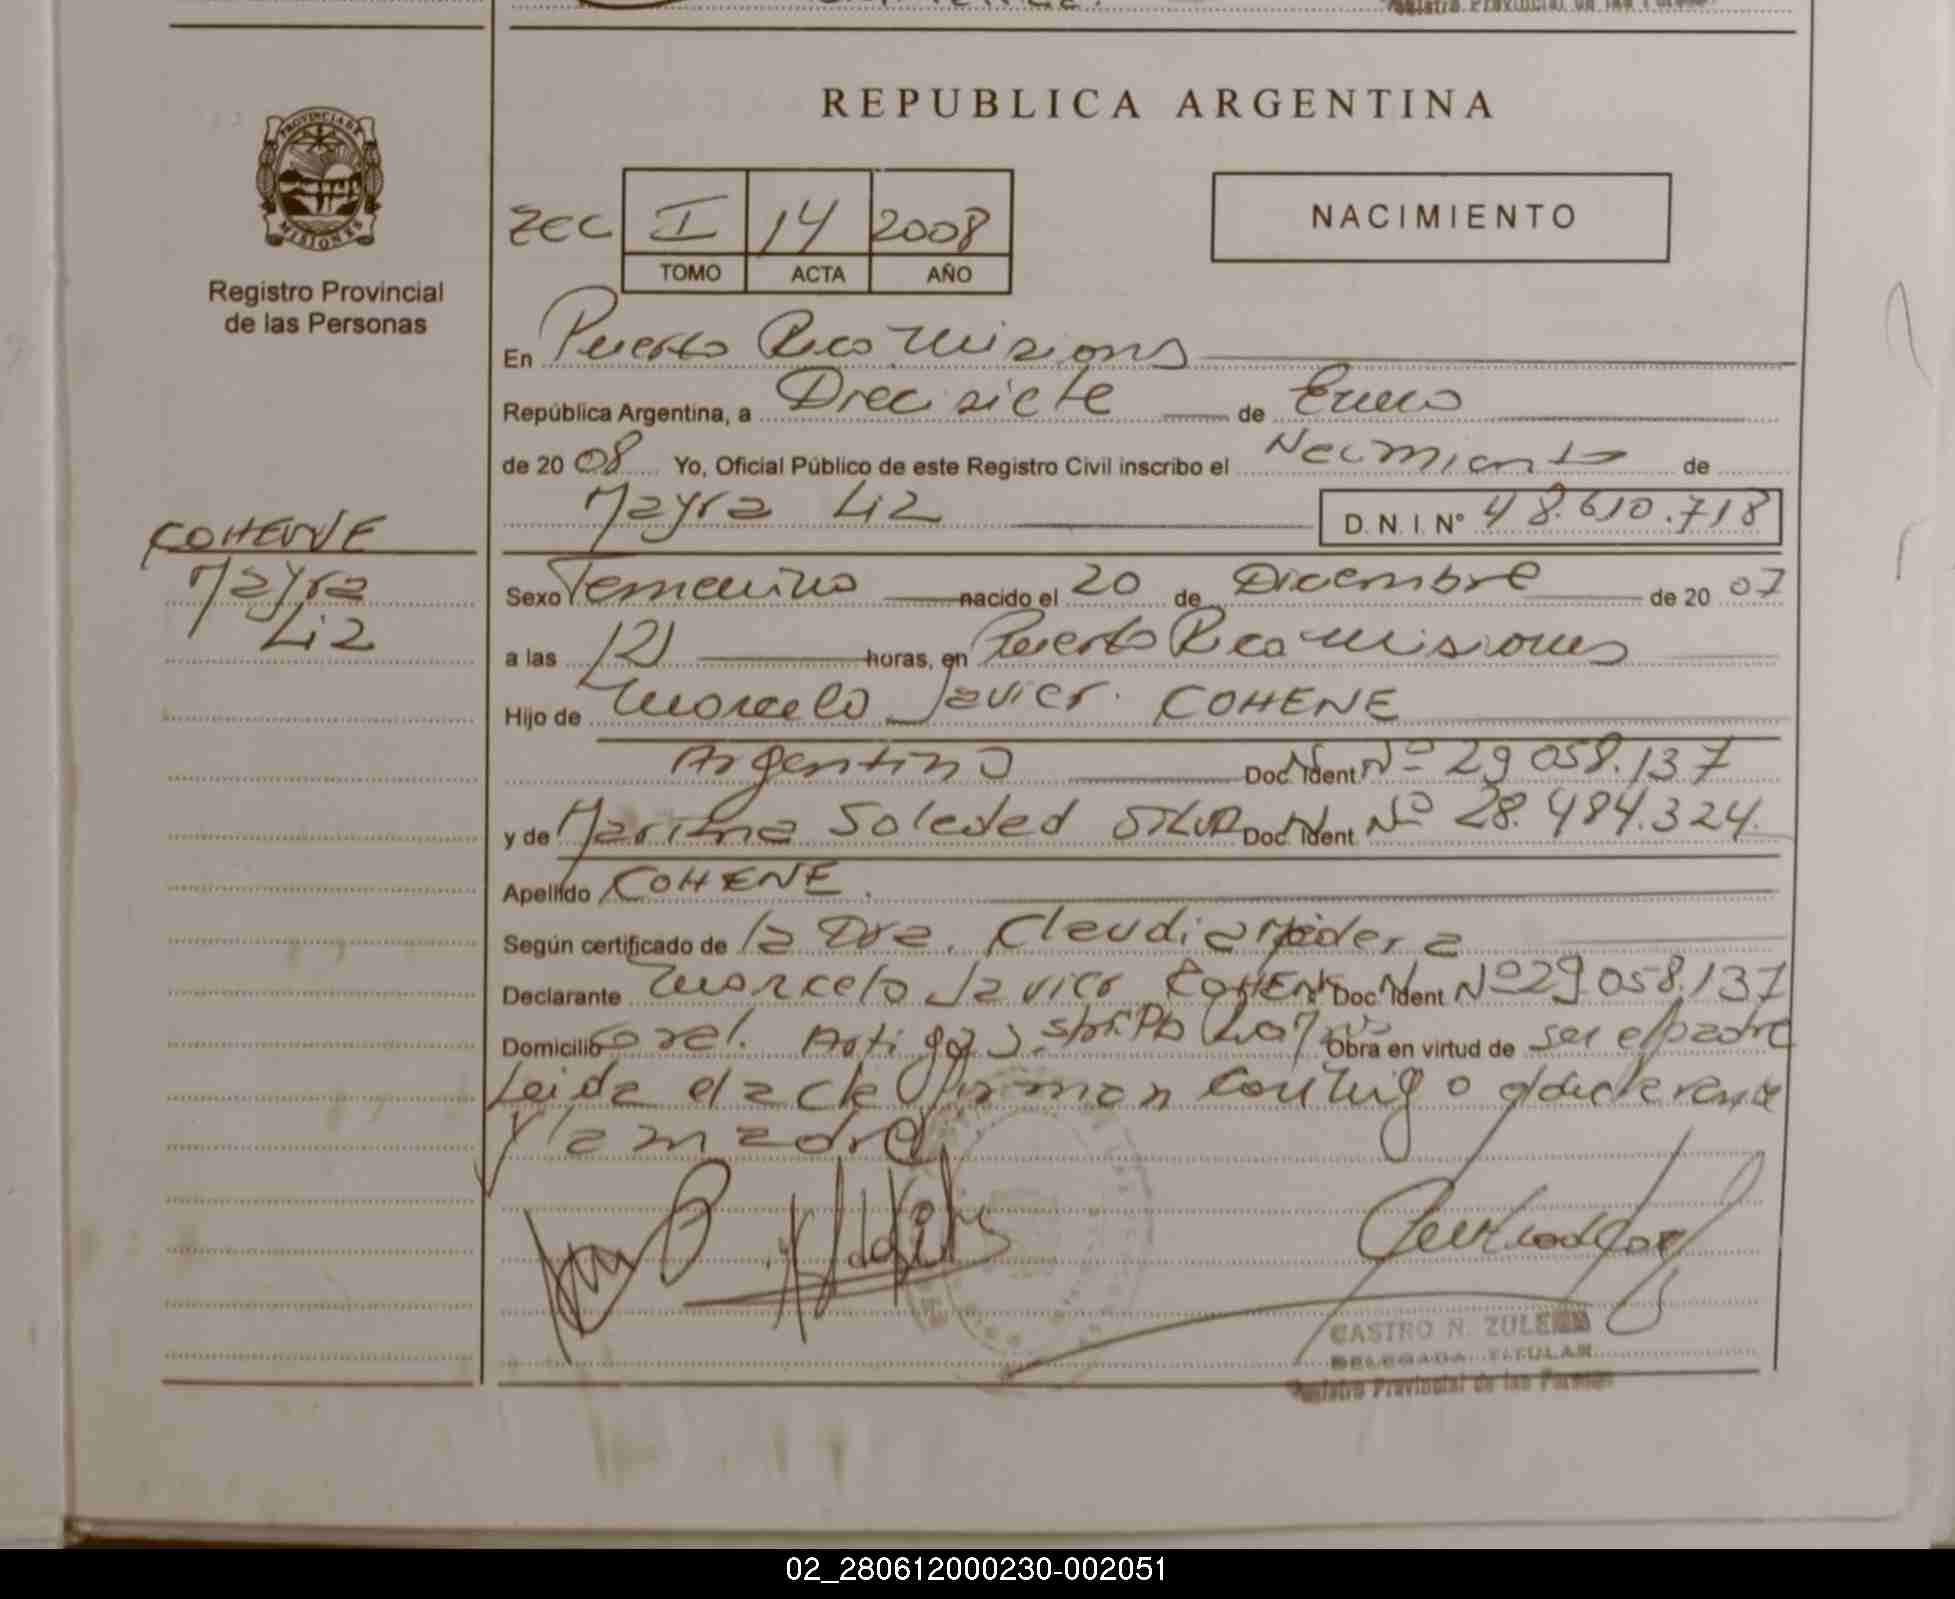 Registro Provincial de las Personas
PROVINCIA DE
MISIONES
Registro Provincial
de las Personas
COHENNE
Mayra
Liz
REPUBLICA ARGENTINA
I 14 2008
TOMO ACTA AÑO
NACIMIENTO
En Puerto Rico Misiones
República Argentina, a Diecisiete de Enero
de 20 08 Yo, Oficial Público de este Registro Civil inscribo el Nacimiento de
Mayra Liz D. N. I. N° 48.610.718
Sexo Femenino nacido el 20 de Diciembre de 20 07
a las 12 horas, en Puerto Rico Misiones
Hijo de Marcelo Javier COHENE
Argentino Doc. Ident. Nº 29 058.137
y de Marina Soledad SILVA Doc. Ident. Nº 28.484.324.
Apellido COHENE.
Según certificado de la Dra. Claudia
Declarante Marcelo Javier COHENE Doc. Ident. Nº 29 058.137
Domicilio Artigas Obra en virtud de ser el padre
Leida el acta firman conmigo el declarante
y la madre
CASTRO N. ZULEMA
DELEGADA TITULAR
Registro Provincial de las Personas
02_280612000230-002051